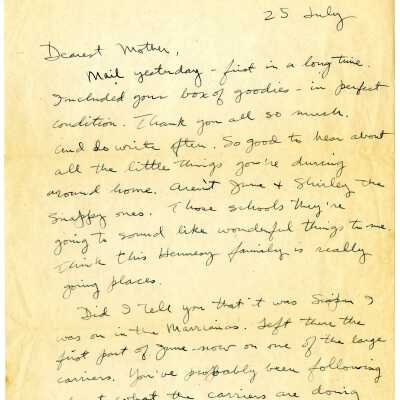 25 July
Dearest Mother,
Mail yesterday - first in a long time.
Included your box of goodies - in perfect
condition. Thank you all so much.
and do write often. So good to hear about
all the little things you're during
around home. Aren't Jane & Shirley the
snappy ones. Those schools they're
going to sound like wonderful things to me.
Think this Hennesy family is really
going places.
Did I tell you that it was Saipan I
was on in the Marrianas. Left there the
first part of June - now on one of the large
carriers. You've probably been following
what the carriers are doing